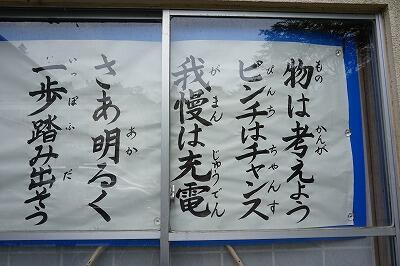 物は考えよう
ピンチはチャンス
我慢は充電
さあ明るく
一歩踏み出そう